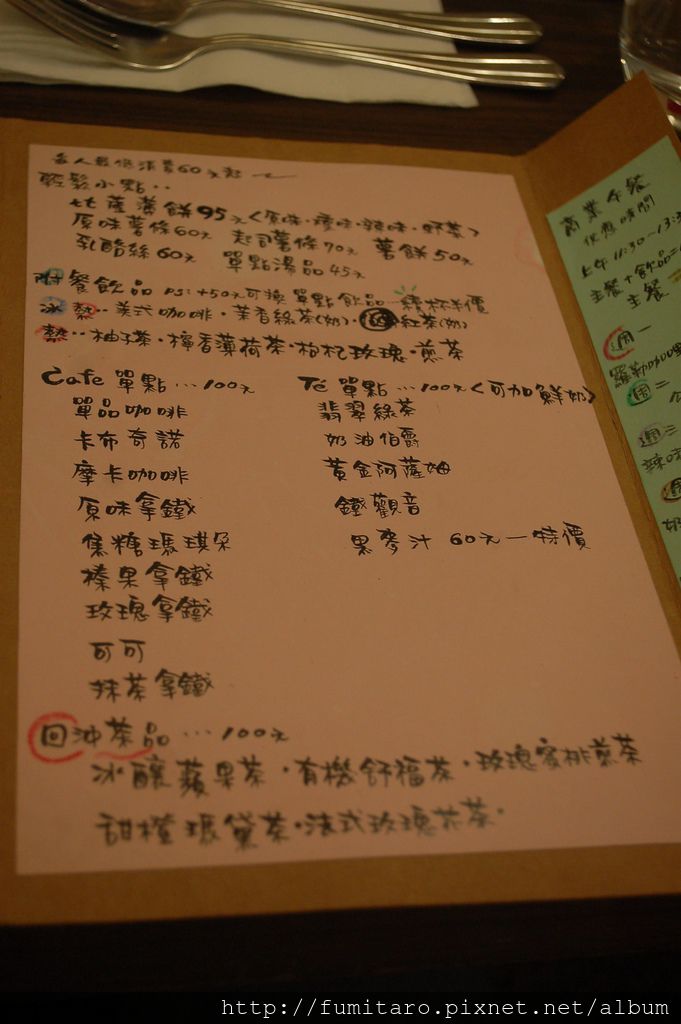 每人最低消費60元起
輕鬆小點..
比薩薄餅95元<原味·燻味·辣味·野菜>
原味薯條60元 起司薯條70元 薯餅50元
乳酪絲60元 單點湯品45元
附餐飲品 PS:+50元可換單點飲品 續杯半價
冰熱..美式咖啡·茉香綠茶(奶)·紅茶(奶)
熱..柚子茶·檸香薄荷茶·枸杞玫瑰·煎茶
Cafe 單點...100元
單品咖啡
卡布奇諾
摩卡咖啡
原味拿鐵
焦糖瑪琪朵
榛果拿鐵
玫瑰拿鐵
可可
抹茶拿鐵
Té 單點...100元<可加鮮奶>
翡翠綠茶
奶油伯爵
黃金阿薩姆
鐵觀音
黑麥汁 60元—特價
回沖茶品...100元
冰釀蘋果茶·有機舒福茶·玫瑰蜜桃煎茶
甜橙瑪黛茶·法式玫瑰花茶·
商業午餐
供應時間
上午11:30~13:3
主餐+飲品=
主餐
週一
羅勒咖哩
週二
週三
辣味
週
奶
http://fumitaro.pixnet.net/album